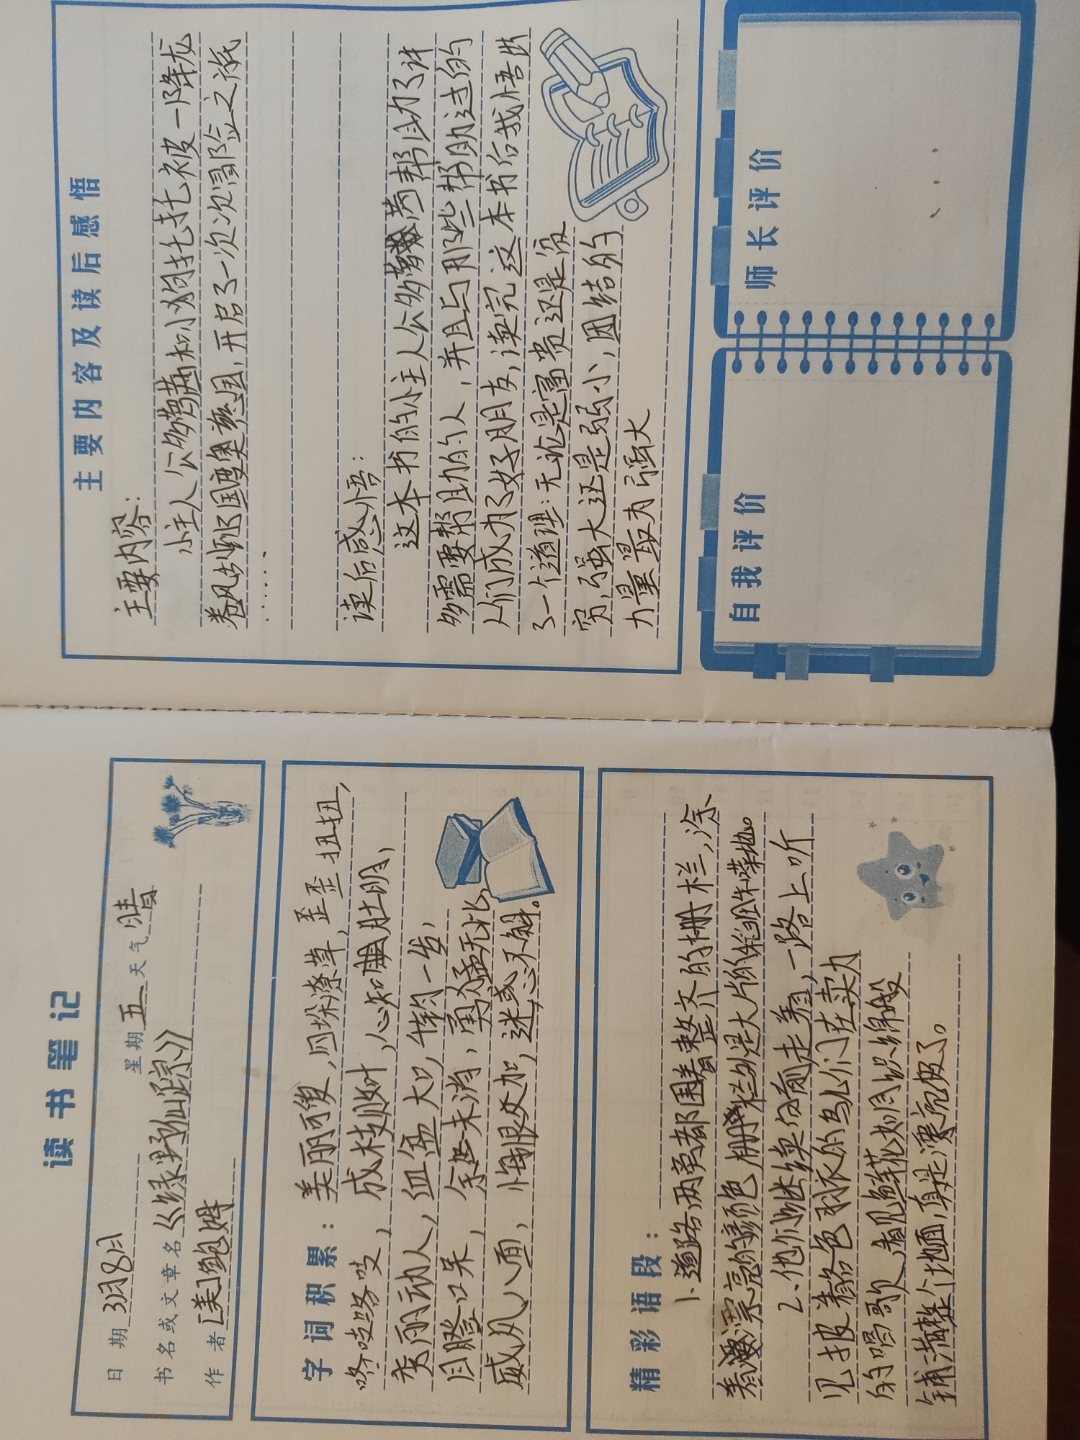 读书笔记
日期 3月8日 星期 五 天气 晴
书名或文章名《绿野仙踪》
作者 [美]鲍姆
字词积累：美丽可傻，闪垛潦草，歪歪扭扭，
咯吱咯吱， 成枝 ，心知肚明，
秀丽动人，血盆大口，惟一步，
目瞪口呆，余 未消，勇猛无比，
威风八面，悔恨交加，迷惑不解。
精彩语段：
1.道路两旁都围着整齐的栅栏，涂
着漂亮的颜色栅栏外是大片的稻田和菜地。
2.他们继续向前走着，一路上听
见披着各色羽衣的鸟儿们在卖力
的唱歌，看见鲜花如同织绵般
铺满整个地面真是漂亮极了。
主要内容及读后感悟
主要内容：
小主人公多萝茜和小狗托托被一降龙
卷风 国度奥 国，开启了一次次冒险之旅
......
读后感悟：
这本书的小主人公多萝茜帮助了许
多需要帮助的人，并且与那些帮助过的
人们成为了好朋友，读完这本书后我悟出
了一个道理：无论是富贵还是贫
穷，强大还是弱小，团结的
力量最为强大
自我评价
师长评价